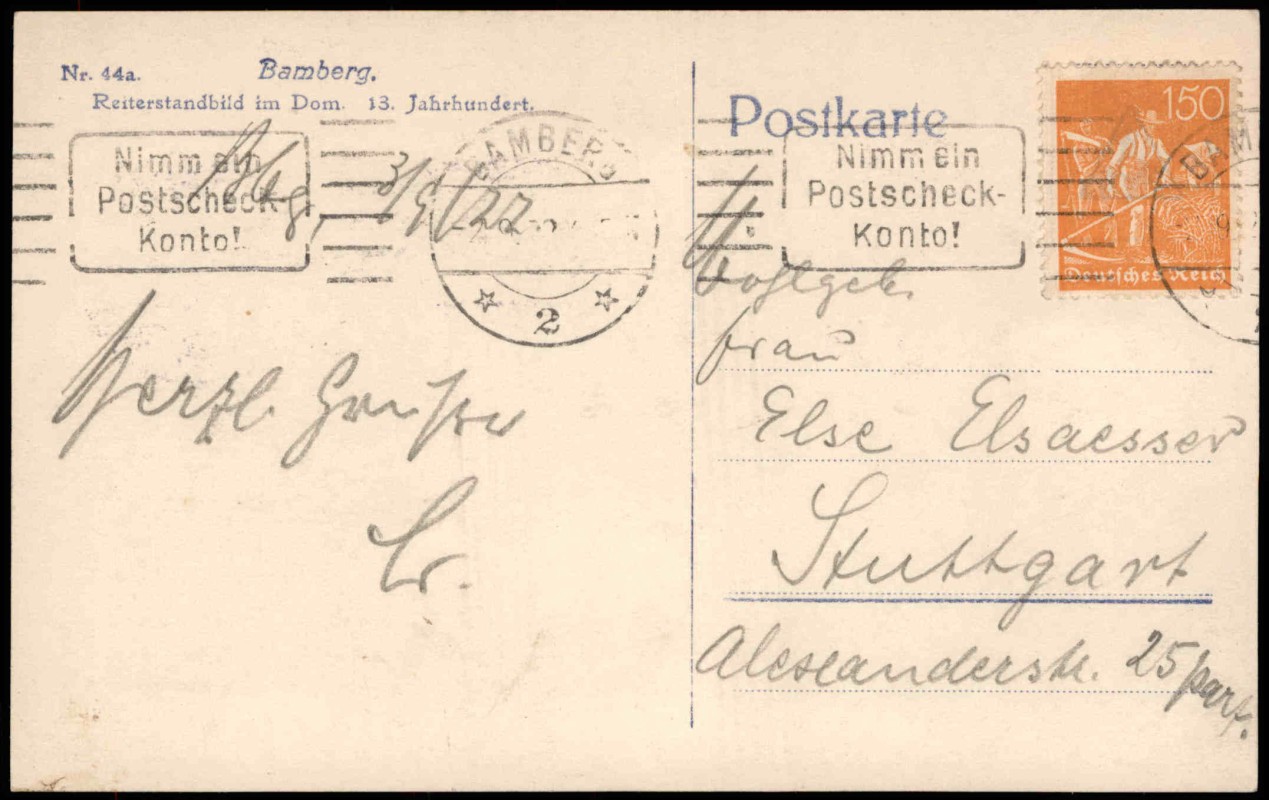 Nr. 44a. Bamberg.
Reiterstandbild im Dom. 13. Jahrhundert.
Nimm ein
Postscheck-
Konto!
Bbg, 3/9 22
BAMBERG
2
Herzl. Grüsse
Postkarte
Nimm ein
Postscheck-
Konto!
150
Deutsches Reich
BAM
Wohlgeb.
Frau
Else Elsaesser
Stuttgart
Alexanderstr. 25 part.